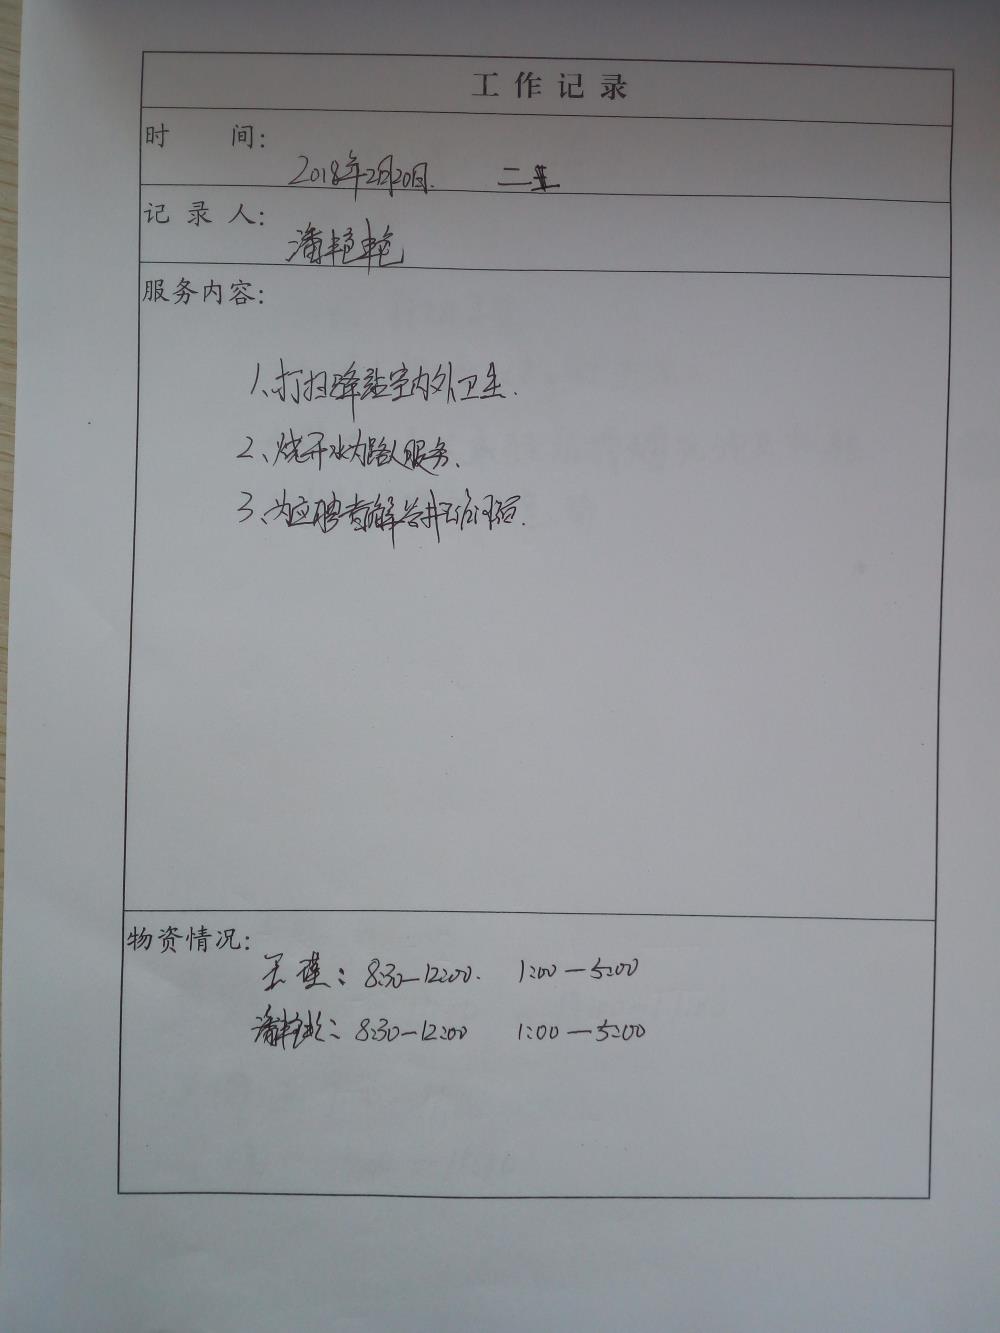 工作记录
时 间:
2018年2月20日. 二
记 录 人:
潘艳艳
服务内容:
1、打扫驿站室内外卫生.
2、烧开水为路人服务.
3、为应聘者解答并
物资情况:
王瑾: 8:30—12:00. 1:00—5:00
潘艳艳: 8:30—12:00 1:00—5:00